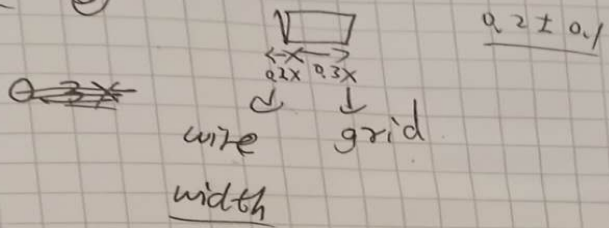 0.2 ± 0.1
0.2x 0.3x
0.3x
wire grid
width